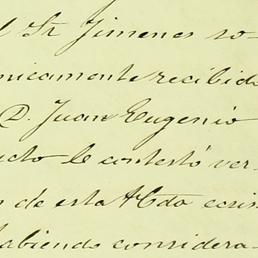 l Sr Jimenes so-
nicamente recibida
D. Juan Eugenio
cto le contestó ver-
n de esta
habiendo considera-